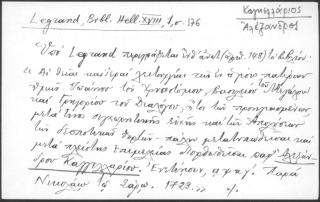 Legrand, Bibl. Hell. XVIII, 1, σ. 176
Καγκελλάριος
Ἀλέξανδρος
Ὑπὸ Legrand περιγράφεται ὑπ' ἀριθ. 148) τὸ βιβλίον.
« Αἱ θεῖαι καὶ ἱεραὶ λειτουργίαι τῶν ἐν ἁγίοις πατέρων
ἡμῶν Ἰωάννου τοῦ Χρυσοστόμου, Βασιλείου τοῦ Μεγάλου
καὶ Γρηγορίου τοῦ Διαλόγου, ἤτοι τῶν προηγιασμένων
μετὰ τῆς συγχωρητικῆς εὐχῆς καὶ τῶν Ἀπολύσεων
τῶν δεσποτικῶν ἑορτῶν πάλιν μετατυπωθεῖσαι καὶ
μετὰ πλείστης ἐπιμελείας διορθωθεῖσαι παρ' Ἀλεξάν-
δρου Καγγελλαρίου. Ἐνετίησιν, αψκγ. Παρὰ
Νικολάῳ τῷ Σάρῳ. 1723. »